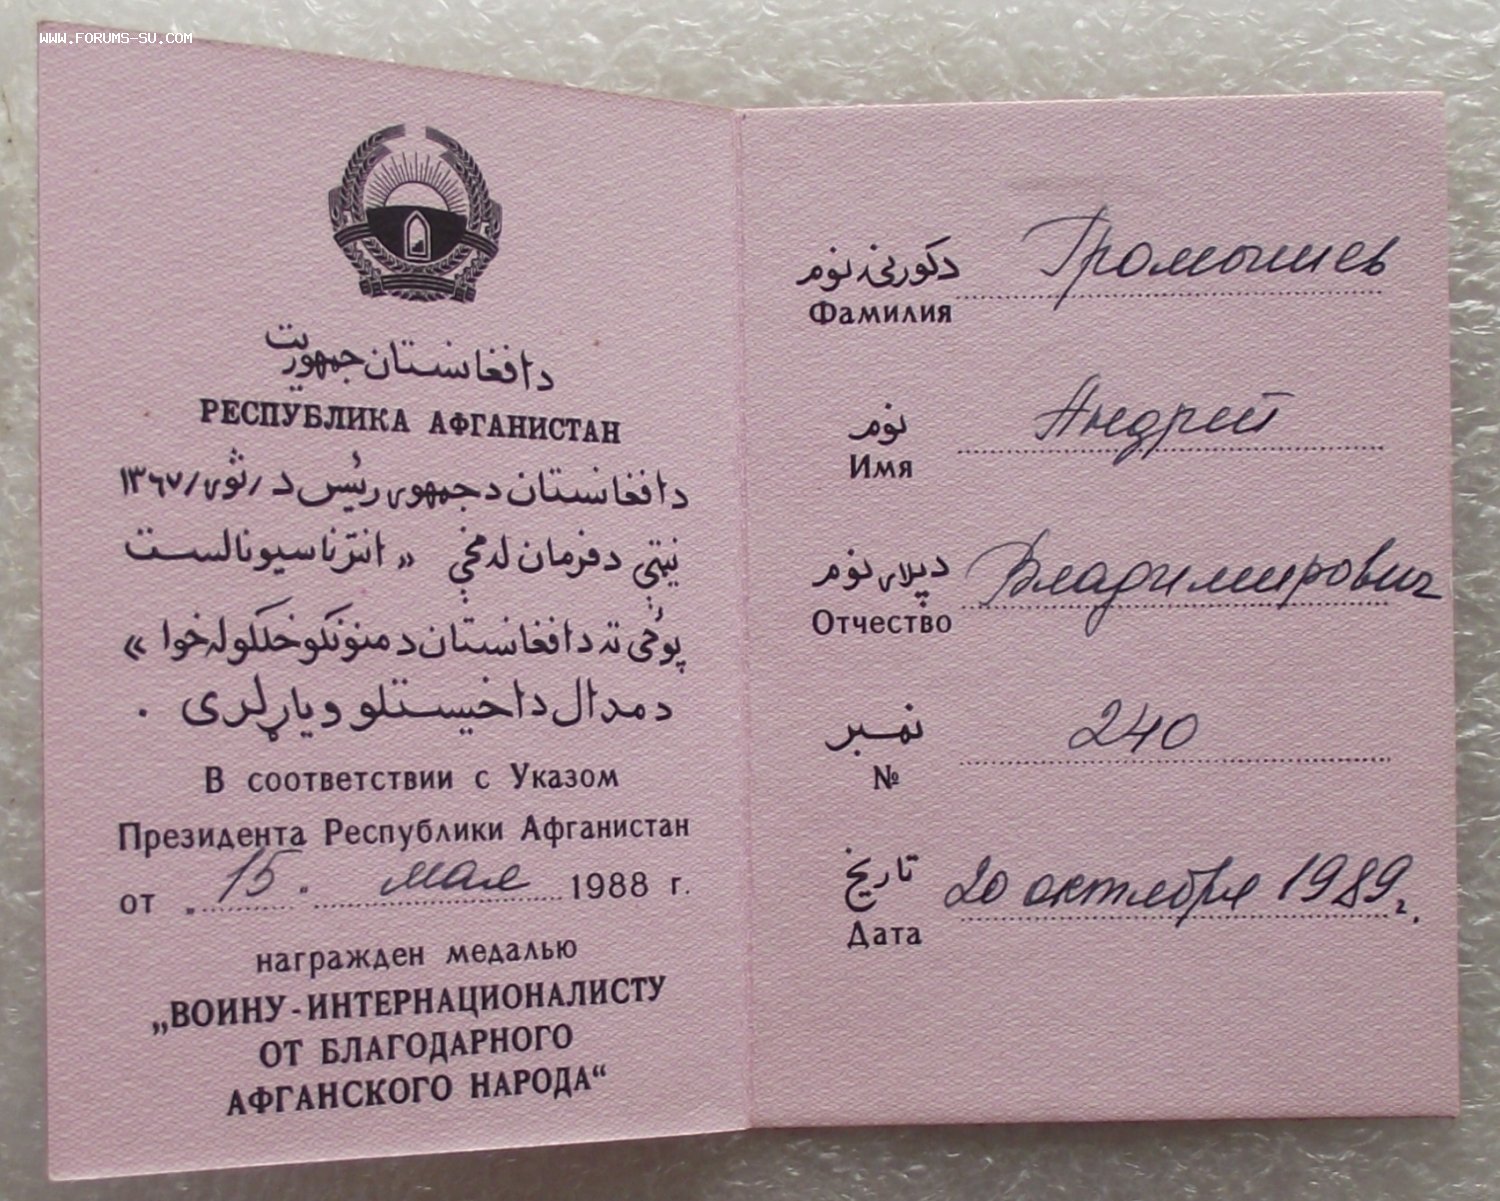 WWW.FORUMS-SU.COM
دافغانستان جمهوریت
РЕСПУБЛИКА АФГАНИСТАН
دافغانستان دجمهوری رئیس د /ثور/ ۱۳۶۷
نیټې دفرمان له مخې « انترناسیونالست
پوځی ته دافغانستان دمنونکو خلکو له خوا »
دمدال داخیستلو ویاړ لری .
В соответствии с Указом
Президента Республики Афганистан
от „ 15 . мая 1988 г.
награжден медалью
„ВОИНУ-ИНТЕРНАЦИОНАЛИСТУ
ОТ БЛАГОДАРНОГО
АФГАНСКОГО НАРОДА“
دکورنی نوم
Фамилия Громышев
نوم
Имя Андрей
دپلار نوم
Отчество Владимирович
نمبر
№ 240
تاریخ
Дата 20 октября 1989 г.